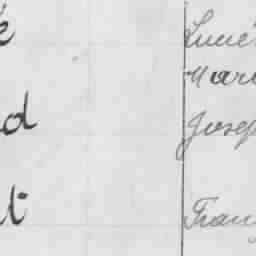 é Lucie
Mari
d Josep
t Franç